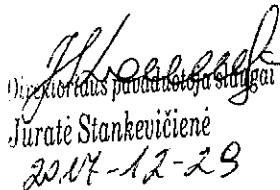 Direktoriaus pavaduotoja slaugai
Jūratė Stankevičienė
2017-12-29